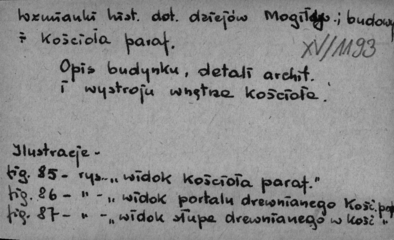 Wzmianki hist. dot. dziejów Mogiły i budowy
kościoła paraf.
XV/1193
Opis budynku, detali archit.
i wystroju wnętrza kościoła.
Ilustracje -
fig. 85 - rys. „widok kościoła paraf."
fig. 86 - " - „widok portalu drewnianego kość. par
fig. 87 - " - „widok słupa drewnianego w kość"